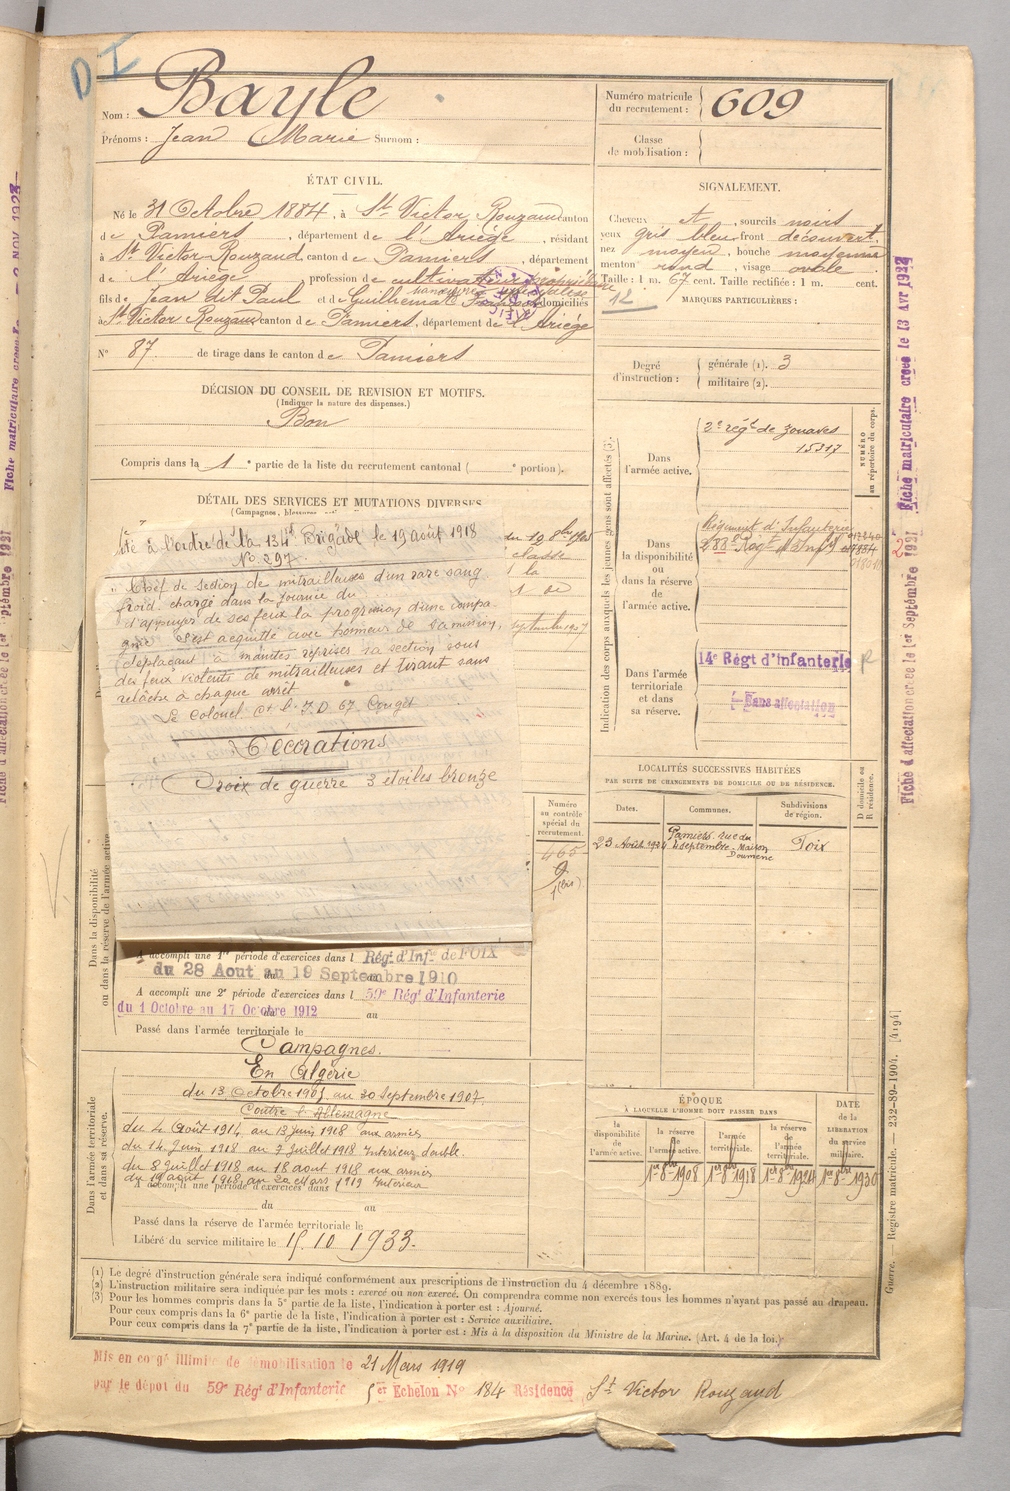 D I
Nom : Bayle
Prénoms : Jean Marie Surnom :
Numéro matricule
du recrutement : 609
Classe
de mobilisation :
ÉTAT CIVIL.
Né le 31 Octobre 1884, à St Victor Rouzaud canton
de Pamiers, département de l'Ariège, résidant
à St Victor Rouzaud, canton de Pamiers, département
de l'Ariège profession de cultivateur
fils de Jean dit Paul et de Guilhemat domiciliés
à St Victor Rouzaud canton de Pamiers, département de l'Ariège
N° 87. de tirage dans le canton de Pamiers
SIGNALEMENT.
Cheveux et, sourcils noirs
yeux gris bleu front découvert,
nez moyen, bouche moyenne
menton rond, visage ovale
Taille : 1 m. 67 cent. Taille rectifiée : 1 m. cent.
12
MARQUES PARTICULIÈRES :
Degré
d'instruction :
générale (1). 3
militaire (2).
DÉCISION DU CONSEIL DE REVISION ET MOTIFS.
(Indiquer la nature des dispenses.)
Bon
Compris dans la 1e partie de la liste du recrutement cantonal ( e portion).
DÉTAIL DES SERVICES ET MUTATIONS DIVERSES
(Campagnes,
à l'ordre de la 134e Brigade le 19 août 1918
No 297
" Chef de section de mitrailleuses d'un rare sang
froid chargé dans la journée du
d'appuyer de ses feux la progression d'une compa
gnie S'est acquitté avec honneur de sa mission,
déplaçant à maintes reprises sa section sous
des feux violents de mitrailleuses et tirant sans
relâche à chaque arrêt
Le Colonel Ct l' I.D. 67 Couget
Décorations
Croix de guerre 3 étoiles bronze
classe
la
septembre 1907
Indication des corps auxquels les jeunes gens sont affectés (3).
Dans
l'armée active.
2e régt de zouaves
15317
NUMÉRO
au répertoire du corps.
Dans
la disponibilité
ou
dans la réserve
de
l'armée active.
Régiment d'Infanterie
288e Régt d'Infie
Dans l'armée
territoriale
et dans
sa réserve.
14e Régt d'infanterie R
Sans affectation
LOCALITÉS SUCCESSIVES HABITÉES
PAR SUITE DE CHANGEMENTS DE DOMICILE OU DE RÉSIDENCE.
Dates. Communes. Subdivisions
de région.
D domicile ou
R résidence.
23 Août Pamiers rue du
4 septembre. Maison
Doumenc
Foix
Numéro
au contrôle
spécial du
recrutement.
465
9
1 (bis)
Dans la disponibilité
ou dans la réserve de l'armée active
A accompli une 1re période d'exercices dans l Régt d'Infie de FOIX
du 28 Aout au 19 Septembre 1910
A accompli une 2e période d'exercices dans l 59e Régt d'Infanterie
du 1 Octobre au 17 Octobre 1912 au
Passé dans l'armée territoriale le
Campagnes.
En Algérie
du 13 Octobre 1905 au 30 Septembre 1907.
Contre l'Allemagne
du 4 Août 1914 au 13 juin 1918 aux armées
du 14 juin 1918 au 7 juillet 1918 Intérieur double.
du 8 juillet 1918 au 18 aout 1918 aux armées
du 19 août 1918 au 20 Mars 1919 Intérieur
A accompli une période d'exercices dans
du au
Dans l'armée territoriale
et dans sa réserve.
Passé dans la réserve de l'armée territoriale le
Libéré du service militaire le 15.10 1933.
ÉPOQUE
À LAQUELLE L'HOMME DOIT PASSER DANS
la
disponibilité
de
l'armée active.
la réserve
de
l'armée active.
l'armée
territoriale.
la réserve
de
l'armée
territoriale.
DATE
de la
LIBÉRATION
du service
militaire.
1er 8bre 1908 1er 8bre 1918 1er 8bre 1924 1er 8bre 1930
(1) Le degré d'instruction générale sera indiqué conformément aux prescriptions de l'instruction du 4 décembre 1889.
(2) L'instruction militaire sera indiquée par les mots : exercé ou non exercé. On comprendra comme non exercés tous les hommes n'ayant pas passé au drapeau.
(3) Pour les hommes compris dans la 5e partie de la liste, l'indication à porter est : Ajourné.
Pour ceux compris dans la 6e partie de la liste, l'indication à porter est : Service auxiliaire.
Pour ceux compris dans la 7e partie de la liste, l'indication à porter est : Mis à la disposition du Ministre de la Marine. (Art. 4 de la loi.)
Mis en congé illimité de démobilisation le 21 Mars 1919
par le dépot du 59e Régt d'Infanterie 5er Echelon No 184 Résidence St Victor Rouzaud
Guerre. — Registre matricule. — 232-89-1904. [4194]
Fiche d'affectation créée le 1er Septembre 1921 Fiche matriculaire créée le 13 Avr 1922